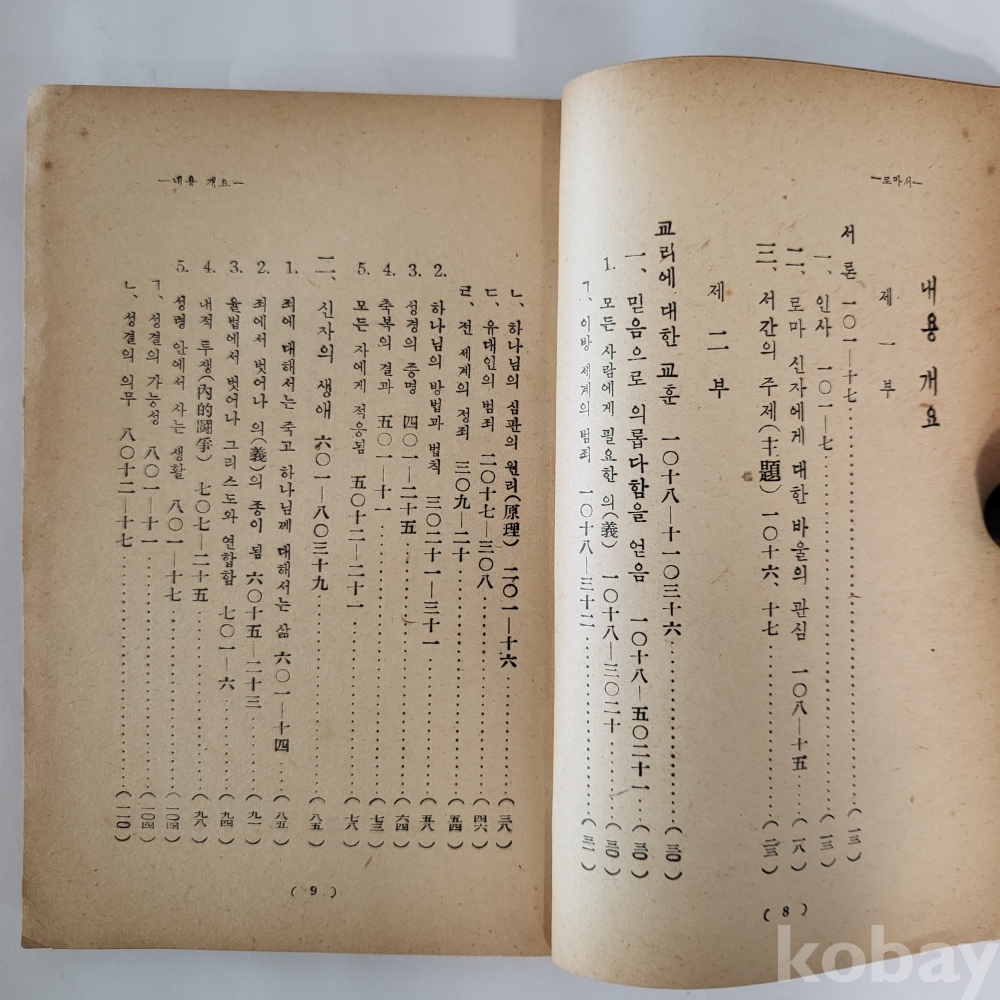 —로마서—
내용 개요
제 一 부
서 론 一〇一—十七 (一三)
一、 인사 一〇一—七 (一三)
二、 로마 신자에게 대한 바울의 관심 一〇八—十五 (一八)
三、 서간의 주제(主題) 一〇十六、十七 (二三)
제 二 부
교리에 대한 교훈 一〇十八—十一〇三十六 (三〇)
一、 믿음으로 의롭다함을 얻음 一〇十八—五〇二十一 (三〇)
1. 모든 사람에게 필요한 의(義) 一〇十八—三〇二十 (三〇)
ㄱ、 이방 세계의 범죄 一〇十八—三十二 (三一)
( 8 )
—내용 개요—
ㄴ、 하나님의 심판의 원리(原理) 二〇一—十六 (三八)
ㄷ、 유대인의 범죄 二〇十七—三〇八 (四六)
ㄹ、 전 세계의 정죄 三〇九—二十 (五四)
2. 하나님의 방법과 법칙 三〇二十一—三十一 (五八)
3. 성경의 증명 四〇一—二十五 (六四)
4. 축복의 결과 五〇一—十一 (七三)
5. 모든 자에게 적응됨 五〇十二—二十一 (七八)
二、 신자의 생애 六〇一—八〇三十九 (八五)
1. 죄에 대해서는 죽고 하나님께 대해서는 삶 六〇一—十四 (八五)
2. 죄에서 벗어나 의(義)의 종이 됨 六〇十五—二十三 (九一)
3. 율법에서 벗어나 그리스도와 연합함 七〇一—六 (九四)
4. 내적 투쟁(內的鬪爭) 七〇七—二十五 (九八)
5. 성령 안에서 사는 생활 八〇一—十七 (一〇四)
ㄱ、 성결의 가능성 八〇一—十一 (一〇四)
ㄴ、 성결의 의무 八〇十二—十七 (一一〇)
( 9 )
kobay